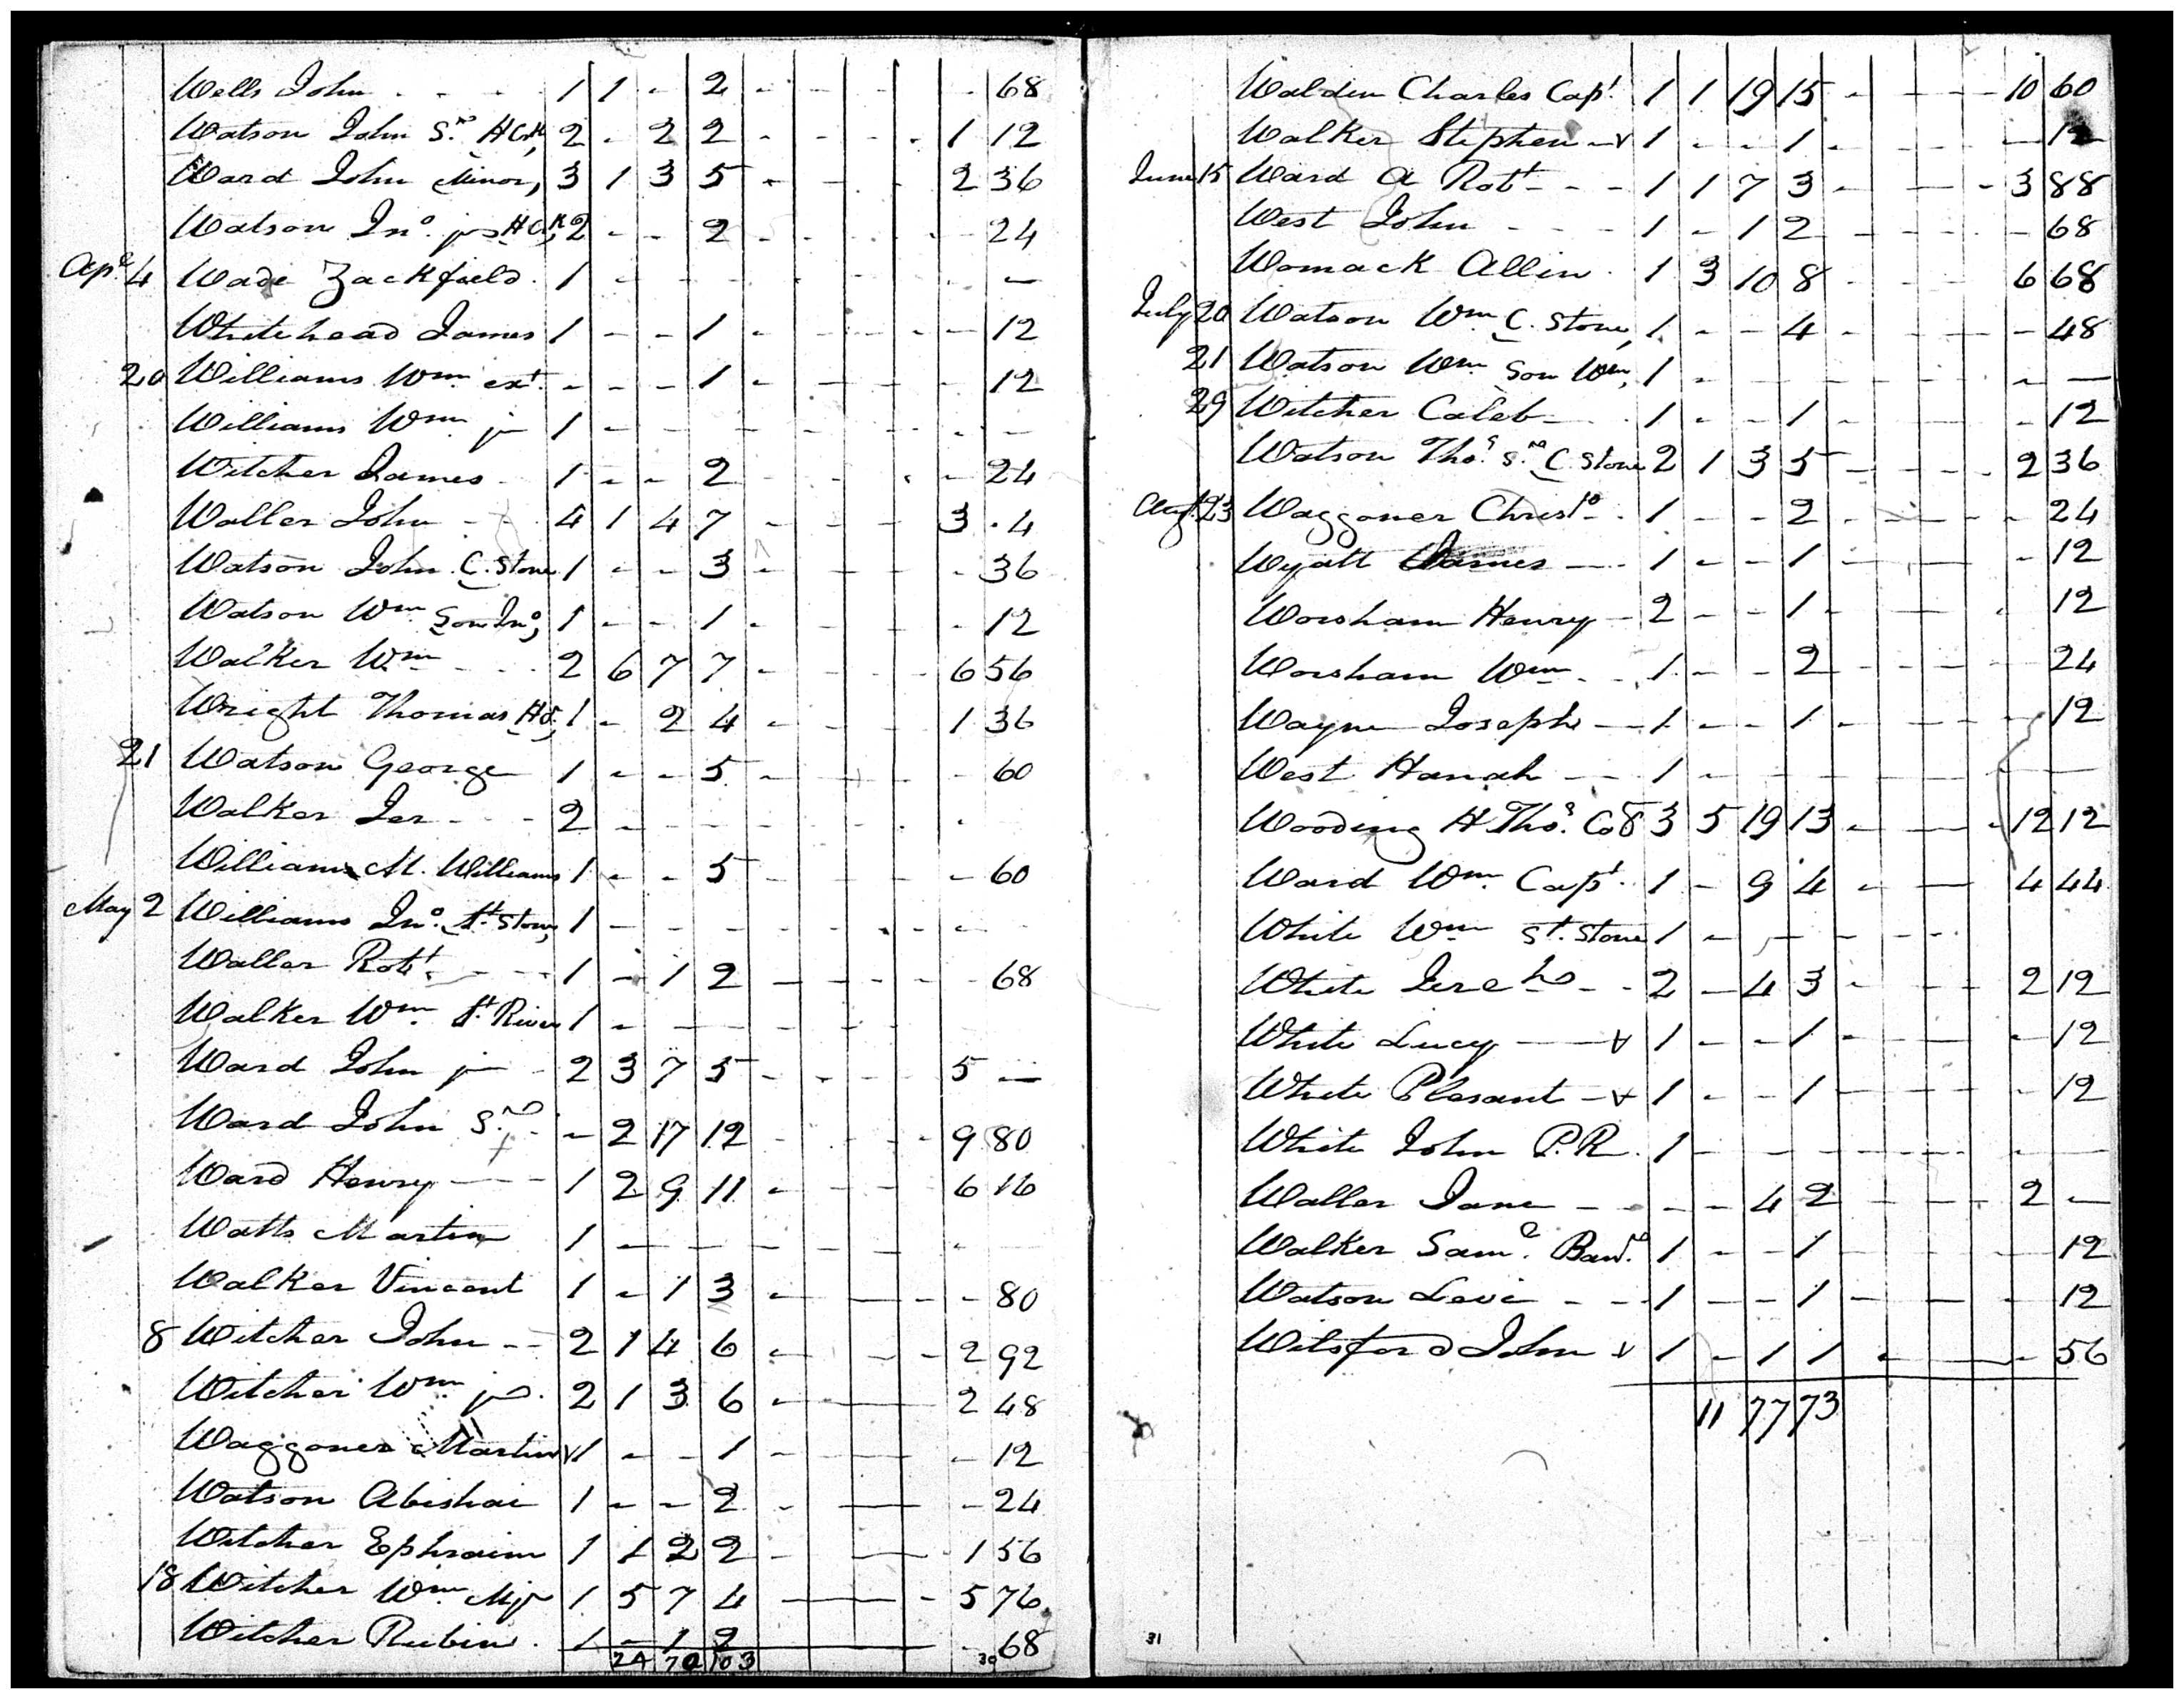 Wells John - - - 1 1 - 2 - - - - - 68
Watson John Sr. HCk, 2 - 2 2 - - - - 1 12
Ward John Minor, 3 1 3 5 - - - - 2 36
Watson Jno. jr HCk, 2 - - 2 - - - - - 24
Apl 4 Wade Zackfield - 1 - - - - - - - - —
Whitehead James 1 - - 1 - - - - - 12
20 Williams Wm. ext. - - - 1 - - - - - 12
Williams Wm. jr 1 - - - - - - - - -
Witcher James - 1 - - 2 - - - - - 24
Waller John - - 4 1 4 7 - - - - 3 . 4
Watson John C. Stone 1 - - 3 - - - - - 36
Watson Wm. Son Jno, 1 - - 1 - - - - - 12
Walker Wm - - - 2 6 7 7 - - - - 6 56
Wright Thomas 1 - 2 4 - - - - 1 36
21 Watson George 1 - - 5 - - - - - 60
Walker Jer - - - 2 - - - - - - - -
Williams M. Williams 1 - - 5 - - - - - 60
May 2 Williams Jno. St. Stone, 1 - - - - - - - -
Waller Robt. - - - 1 - 1 2 - - - - - 68
Walker Wm. St. River 1 - - - - - -
Ward John jr - 2 3 7 5 - - - - 5 —
Ward John Sr. - - 2 17 12 - - - - 9 80
Ward Henry - - - 1 2 9 11 - - - - 6 16
Watts Martin 1 - - - - - - - -
Walker Vincent 1 - 1 3 - - - - - 80
8 Witcher John - - 2 1 4 6 - - - - 2 92
Witcher Wm jr. 2 1 3 6 - — 2 48
Waggoner Martin v 1 - - 1 - - - - - 12
Watson Abishai 1 - - 2 - — - 24
Witcher Ephraim 1 1 2 2 - — - 1 56
18 Witcher Wm. Mjr 1 5 7 4 — — - 5 76
Witcher Rubin . 1 - 1 2 — - 68
24 70 103
30
Walden Charles Capt. 1 1 19 15 - - - - 10 60
Walker Stephen - v 1 - - 1 - - - - - 12
June 15 Ward A Robt - - - 1 1 7 3 - - - - 3 88
West John - - - 1 - 1 2 - - - - - 68
Womack Allin . 1 3 10 8 - - - - 6 68
July 20 Watson Wm. C. Stone, 1 - - 4 - - - - - 48
21 Watson Wm. Son Wm, 1 - - - - - - - - —
29 Witcher Caleb - . 1 - - 1 - - - - - 12
Watson Thos. Sr. C. Stone 2 1 3 5 - - - - 2 36
Augt. 23 Waggoner Christo. . 1 - - 2 - - - - - 24
Wyatt James — . 1 - - 1 - - - - - 12
Worsham Henry - 2 - - 1 - - - . 12
Worsham Wm - . . 1 - - 2 - - - - 24
Wayne Joseph — 1 - - 1 - - - - - 12
West Hanah - - 1 - - - - - - - -
Wooding H Thos. Col 3 5 19 13 - - - - 12 12
Ward Wm. Capt. 1 - 9 4 - — 4 44
White Wm St. Stone 1 - - - - - - -
White Jereh - - 2 - 4 3 - - - - 2 12
White Lucy — v 1 - - 1 - - - - - 12
White Plesant - v 1 - - 1 - - - - - 12
White John P.R. 1 - - - - - - - - —
Waller Jane - - - - 4 2 - - - - 2 —
Walker Saml. 1 - - 1 - - - - 12
Watson Levi - - - 1 - - 1 - - - - 12
Witsford John v 1 - 1 1 - — - 56
11 77 73
31